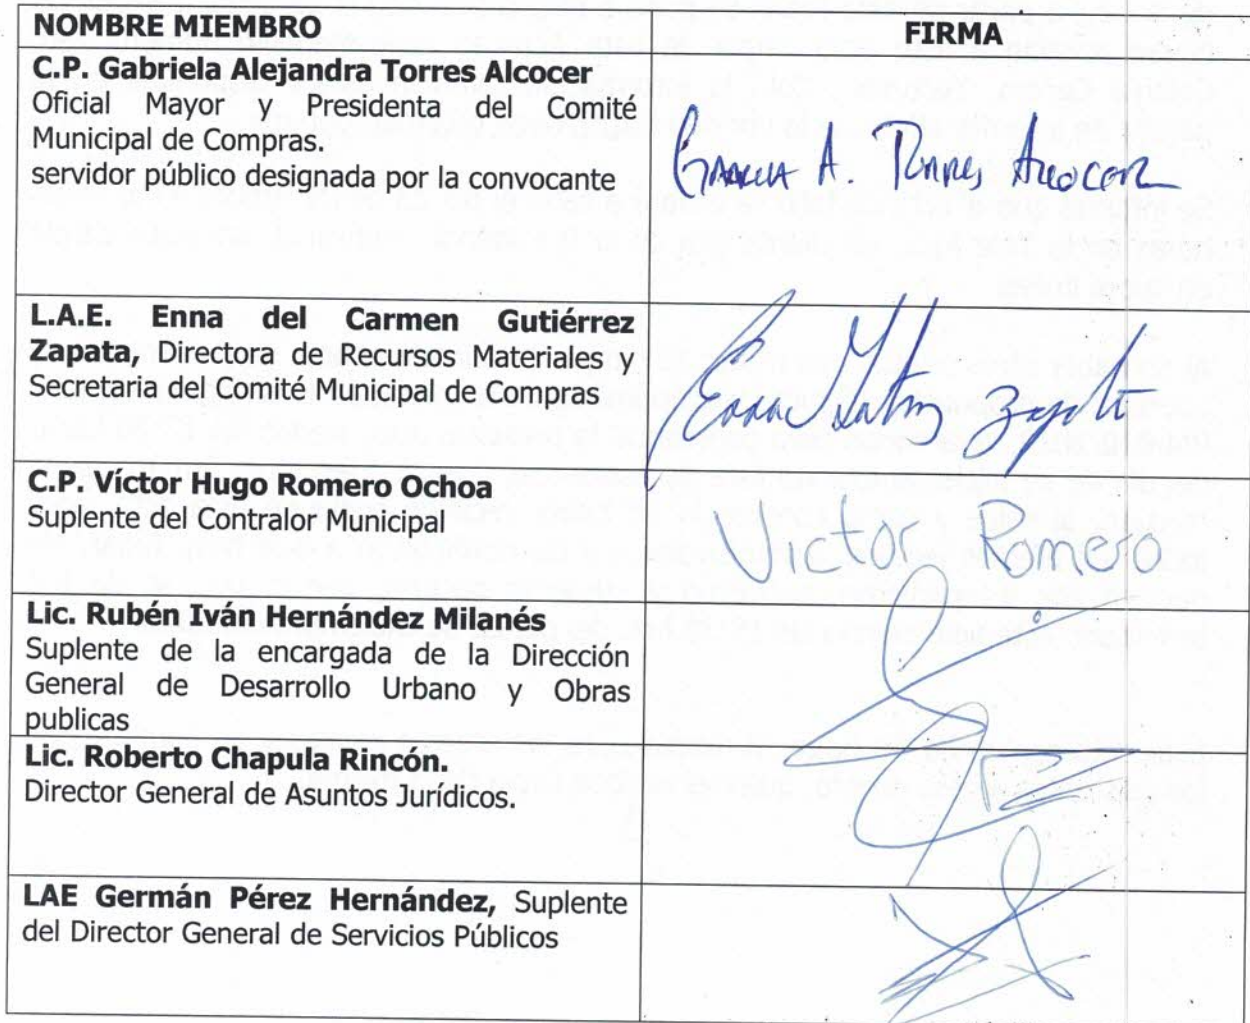 NOMBRE MIEMBRO
FIRMA
C.P. Gabriela Alejandra Torres Alcocer
Oficial Mayor y Presidenta del Comité
Municipal de Compras.
servidor público designada por la convocante
A. Torres Alcocer
L.A.E. Enna del Carmen Gutiérrez
Zapata, Directora de Recursos Materiales y
Secretaria del Comité Municipal de Compras
Enna Zapata
C.P. Víctor Hugo Romero Ochoa
Suplente del Contralor Municipal
Victor Romero
Lic. Rubén Iván Hernández Milanés
Suplente de la encargada de la Dirección
General de Desarrollo Urbano y Obras
publicas
Lic. Roberto Chapula Rincón.
Director General de Asuntos Jurídicos.
LAE Germán Pérez Hernández, Suplente
del Director General de Servicios Públicos